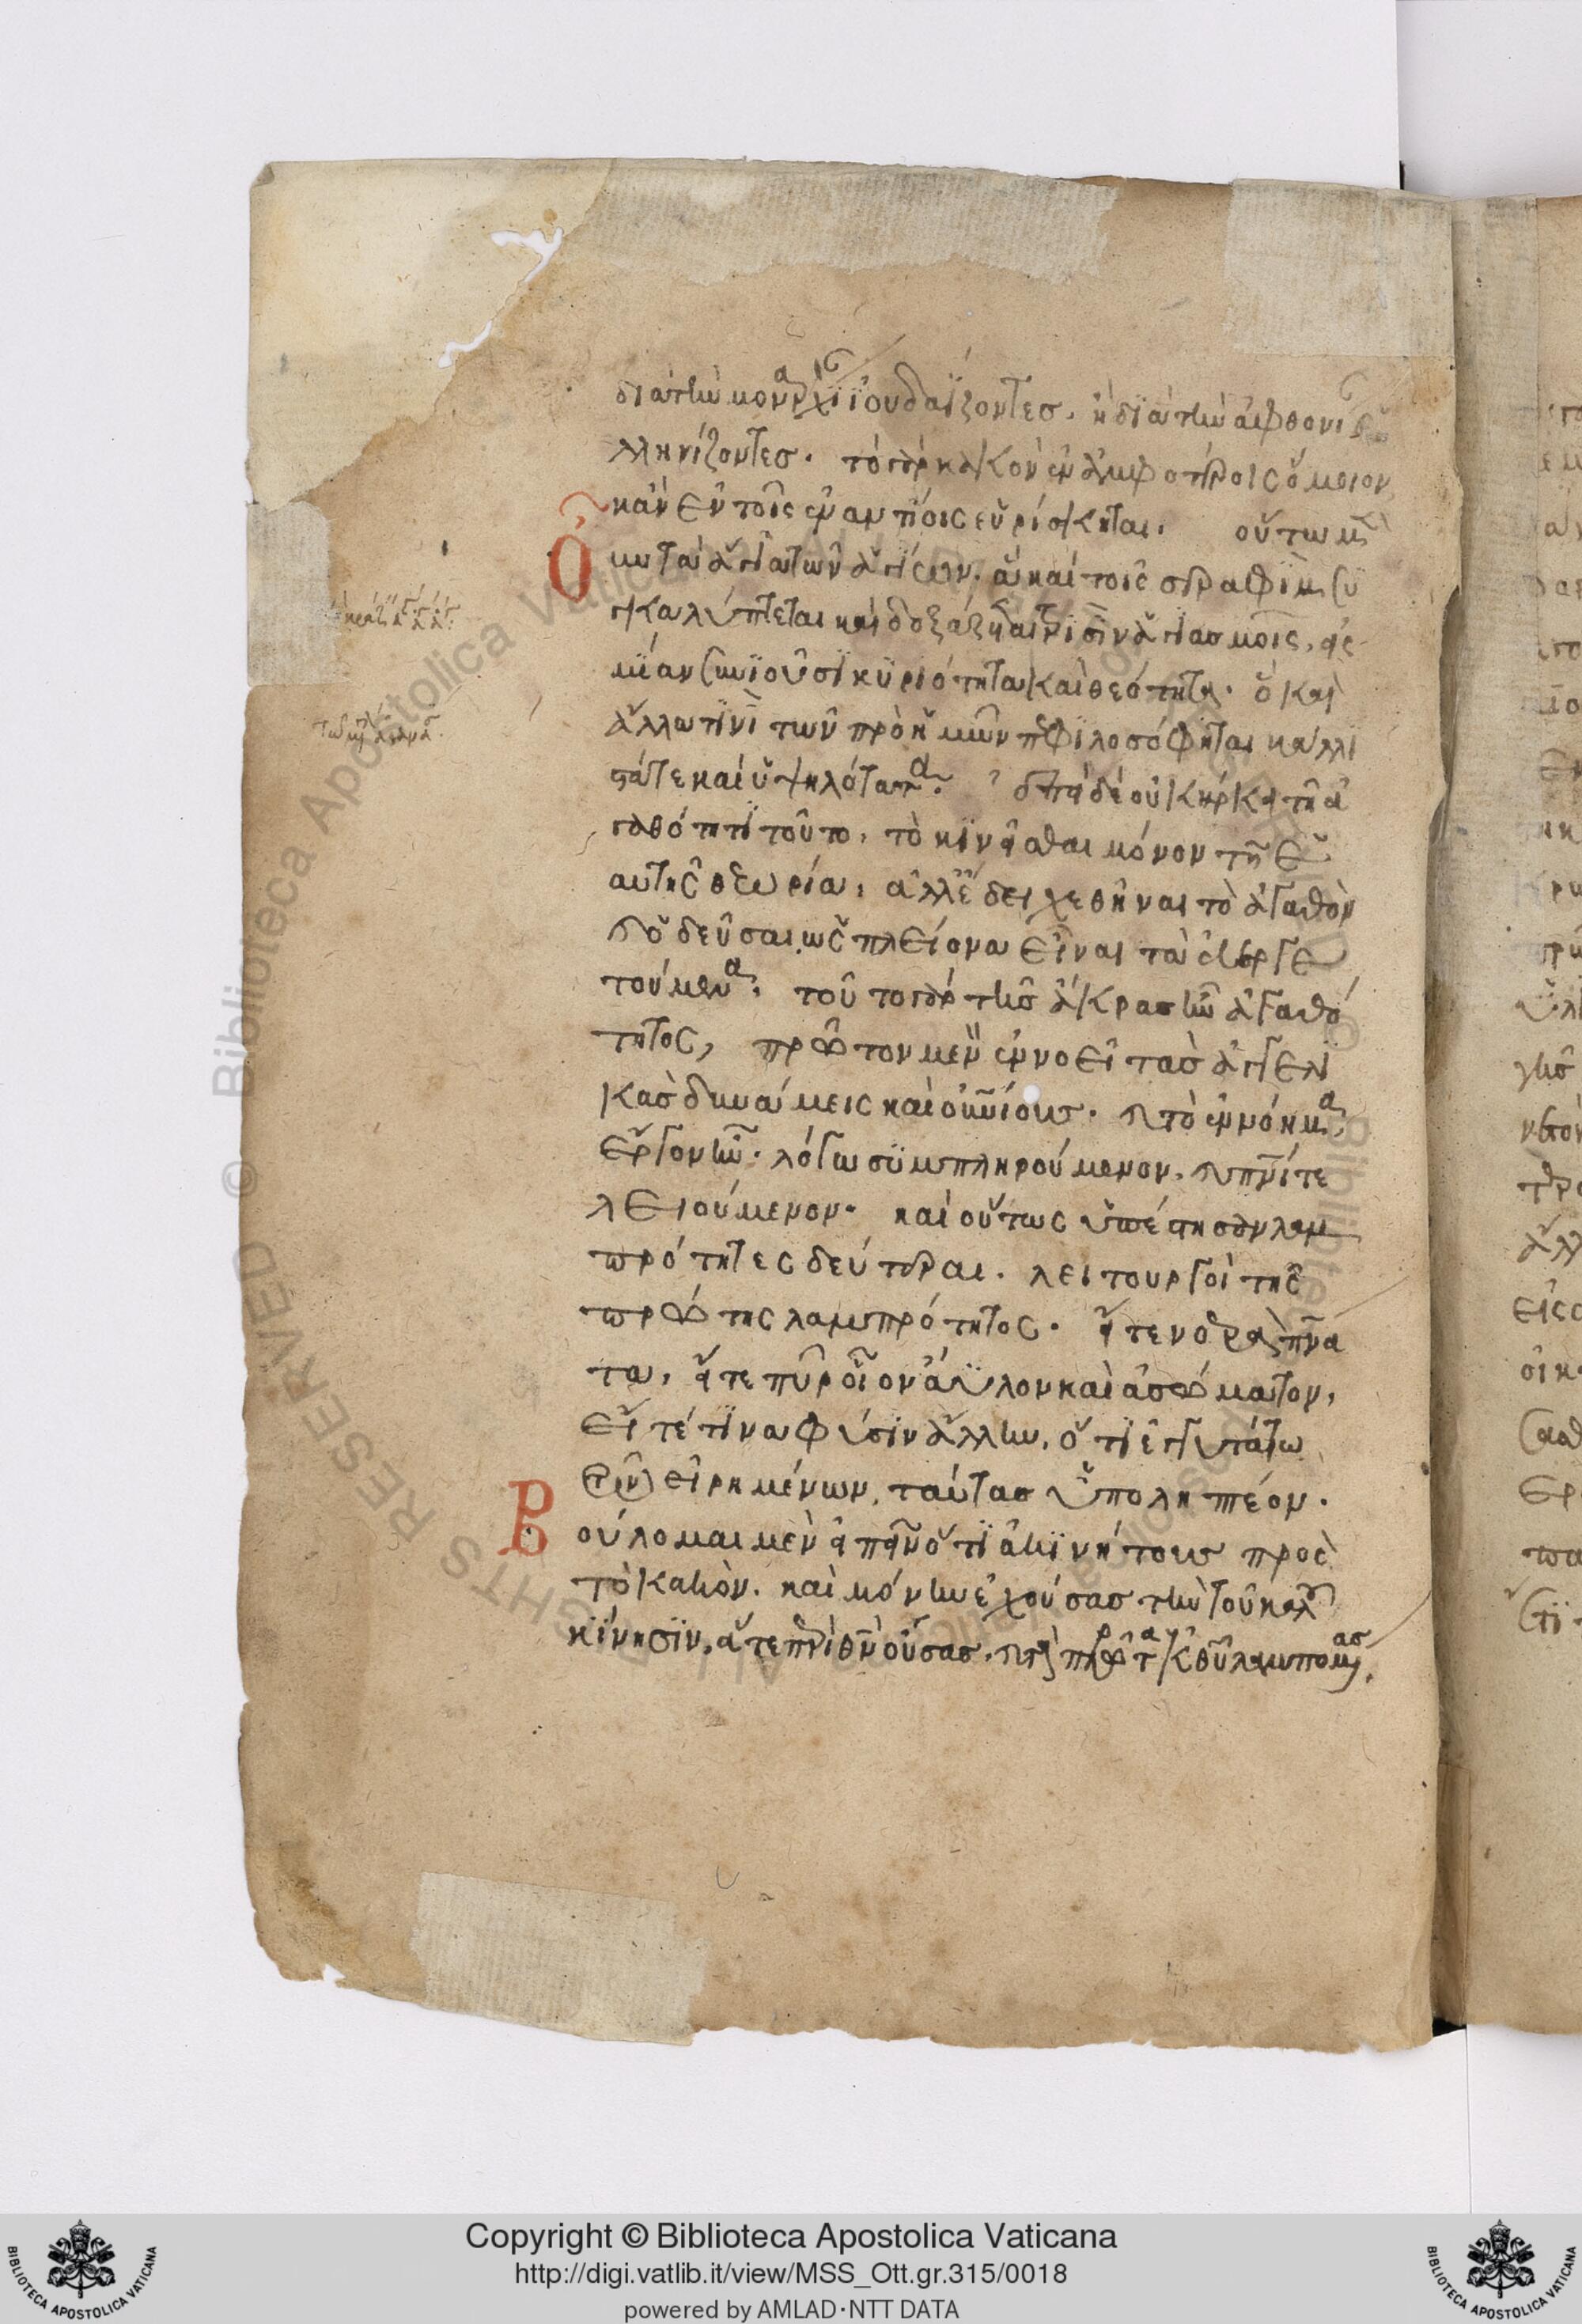 διὰ τὴν μοναρχίαν ἰουδαΐζοντες. ἢ διὰ τὴν ἀφθονίαν ἑ
λληνίζοντες. τὸ γὰρ κακὸν ἐν ἀμφοτέροις ὅμοιον
κἂν ἐν τοῖς ἐναντίοις εὑρίσκηται. οὕτω μὲν
οὖν τὰ ἅγια τῶν ἁγίων. ἃ καὶ τοῖς σεραφὶμ συ
γκαλύπτεται καὶ δοξάζεται τρισὶν ἁγιασμοῖς, εἰς
μίαν συνιοῦσι κυριότητα καὶ θεότητα. ὃ καὶ
ἄλλω τινὶ τῶν πρὸ ἡμῶν πεφιλοσόφηται κάλλι
στά τε καὶ ὑψηλότατα. ἐπεὶ δὲ οὐκ ἤρκει τῇ ἀ
γαθότητι τοῦτο, τὸ κινεῖσθαι μόνον τῇ ἑ
αυτῆς θεωρία, ἀλλ' ἔδει χεθῆναι τὸ ἀγαθὸν
καὶ ὁδεῦσαι ὡς πλείονα εἶναι τὰ εὐεργε
τούμενα. τοῦτο γὰρ τῆς ἄκρας ἦν ἀγαθό
τητος, πρῶτον μὲν ἐννοεῖ τὰς ἀγγελι
κὰς δυνάμεις καὶ οὐνίους. καὶ τὸ ἐννόημα
ἔργον ἦν. λόγω συμπληρούμενον. καὶ πνι τε
λειούμενον. καὶ οὕτως ὑπέστησαν λαμ
πρότητες δεύτεραι. λειτουργοὶ τῆς
πρώτης λαμπρότητος. εἴτε νοερὰ πνα
τα, εἴτε πῦρ οἷον ἄυλον καὶ ἀσώματον,
εἴτέ τινα φύσιν ἄλλην, ὅτι ἐγγυτάτω
τῶν εἰρημένων, ταύτας ὑποληπτέον.
Βούλομαι μὲν εἰπεῖν ὅτι ἀκινήτους πρὸς
τὸ κακὸν. καὶ μόνην ἐχούσας τὴν τοῦ καλοῦ
κίνησιν, ἅτε περὶ θν οὔσας. καὶ τὰ πρῶτα ἐκ θυ λαμπομένας.